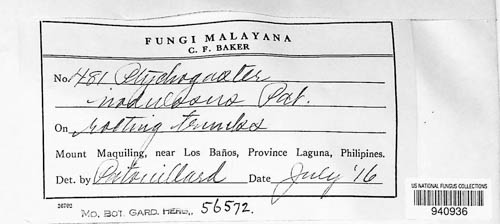 FUNGI MALAYANA
C. F. BAKER
No. 481 Ptychogaster
Pat.
On rotting
Mount Maquiling, near Los Baños, Province Laguna, Philipines.
Det. by Patouillard Date July '16
26702
MO. BOT. GARD. HERB., 56572.
US NATIONAL FUNGUS COLLECTIONS
940936